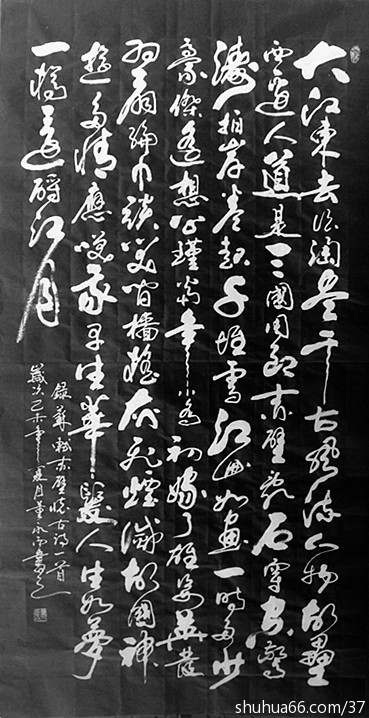 大江東去浪淘盡千古風流人物故壘
西邊人道是三國周郎赤壁亂石穿空驚
濤拍岸卷起千堆雪江山如畫一時多少
豪傑遙想公瑾當年小喬初嫁了雄姿英發
羽扇綸巾談笑間檣櫓灰飛煙滅故國神
遊多情應笑我早生華髮人生如夢
一樽還酹江月
錄蘇軾赤壁懷古詩一首
歲次己未年夏月董永書之
shuhua66.com/37